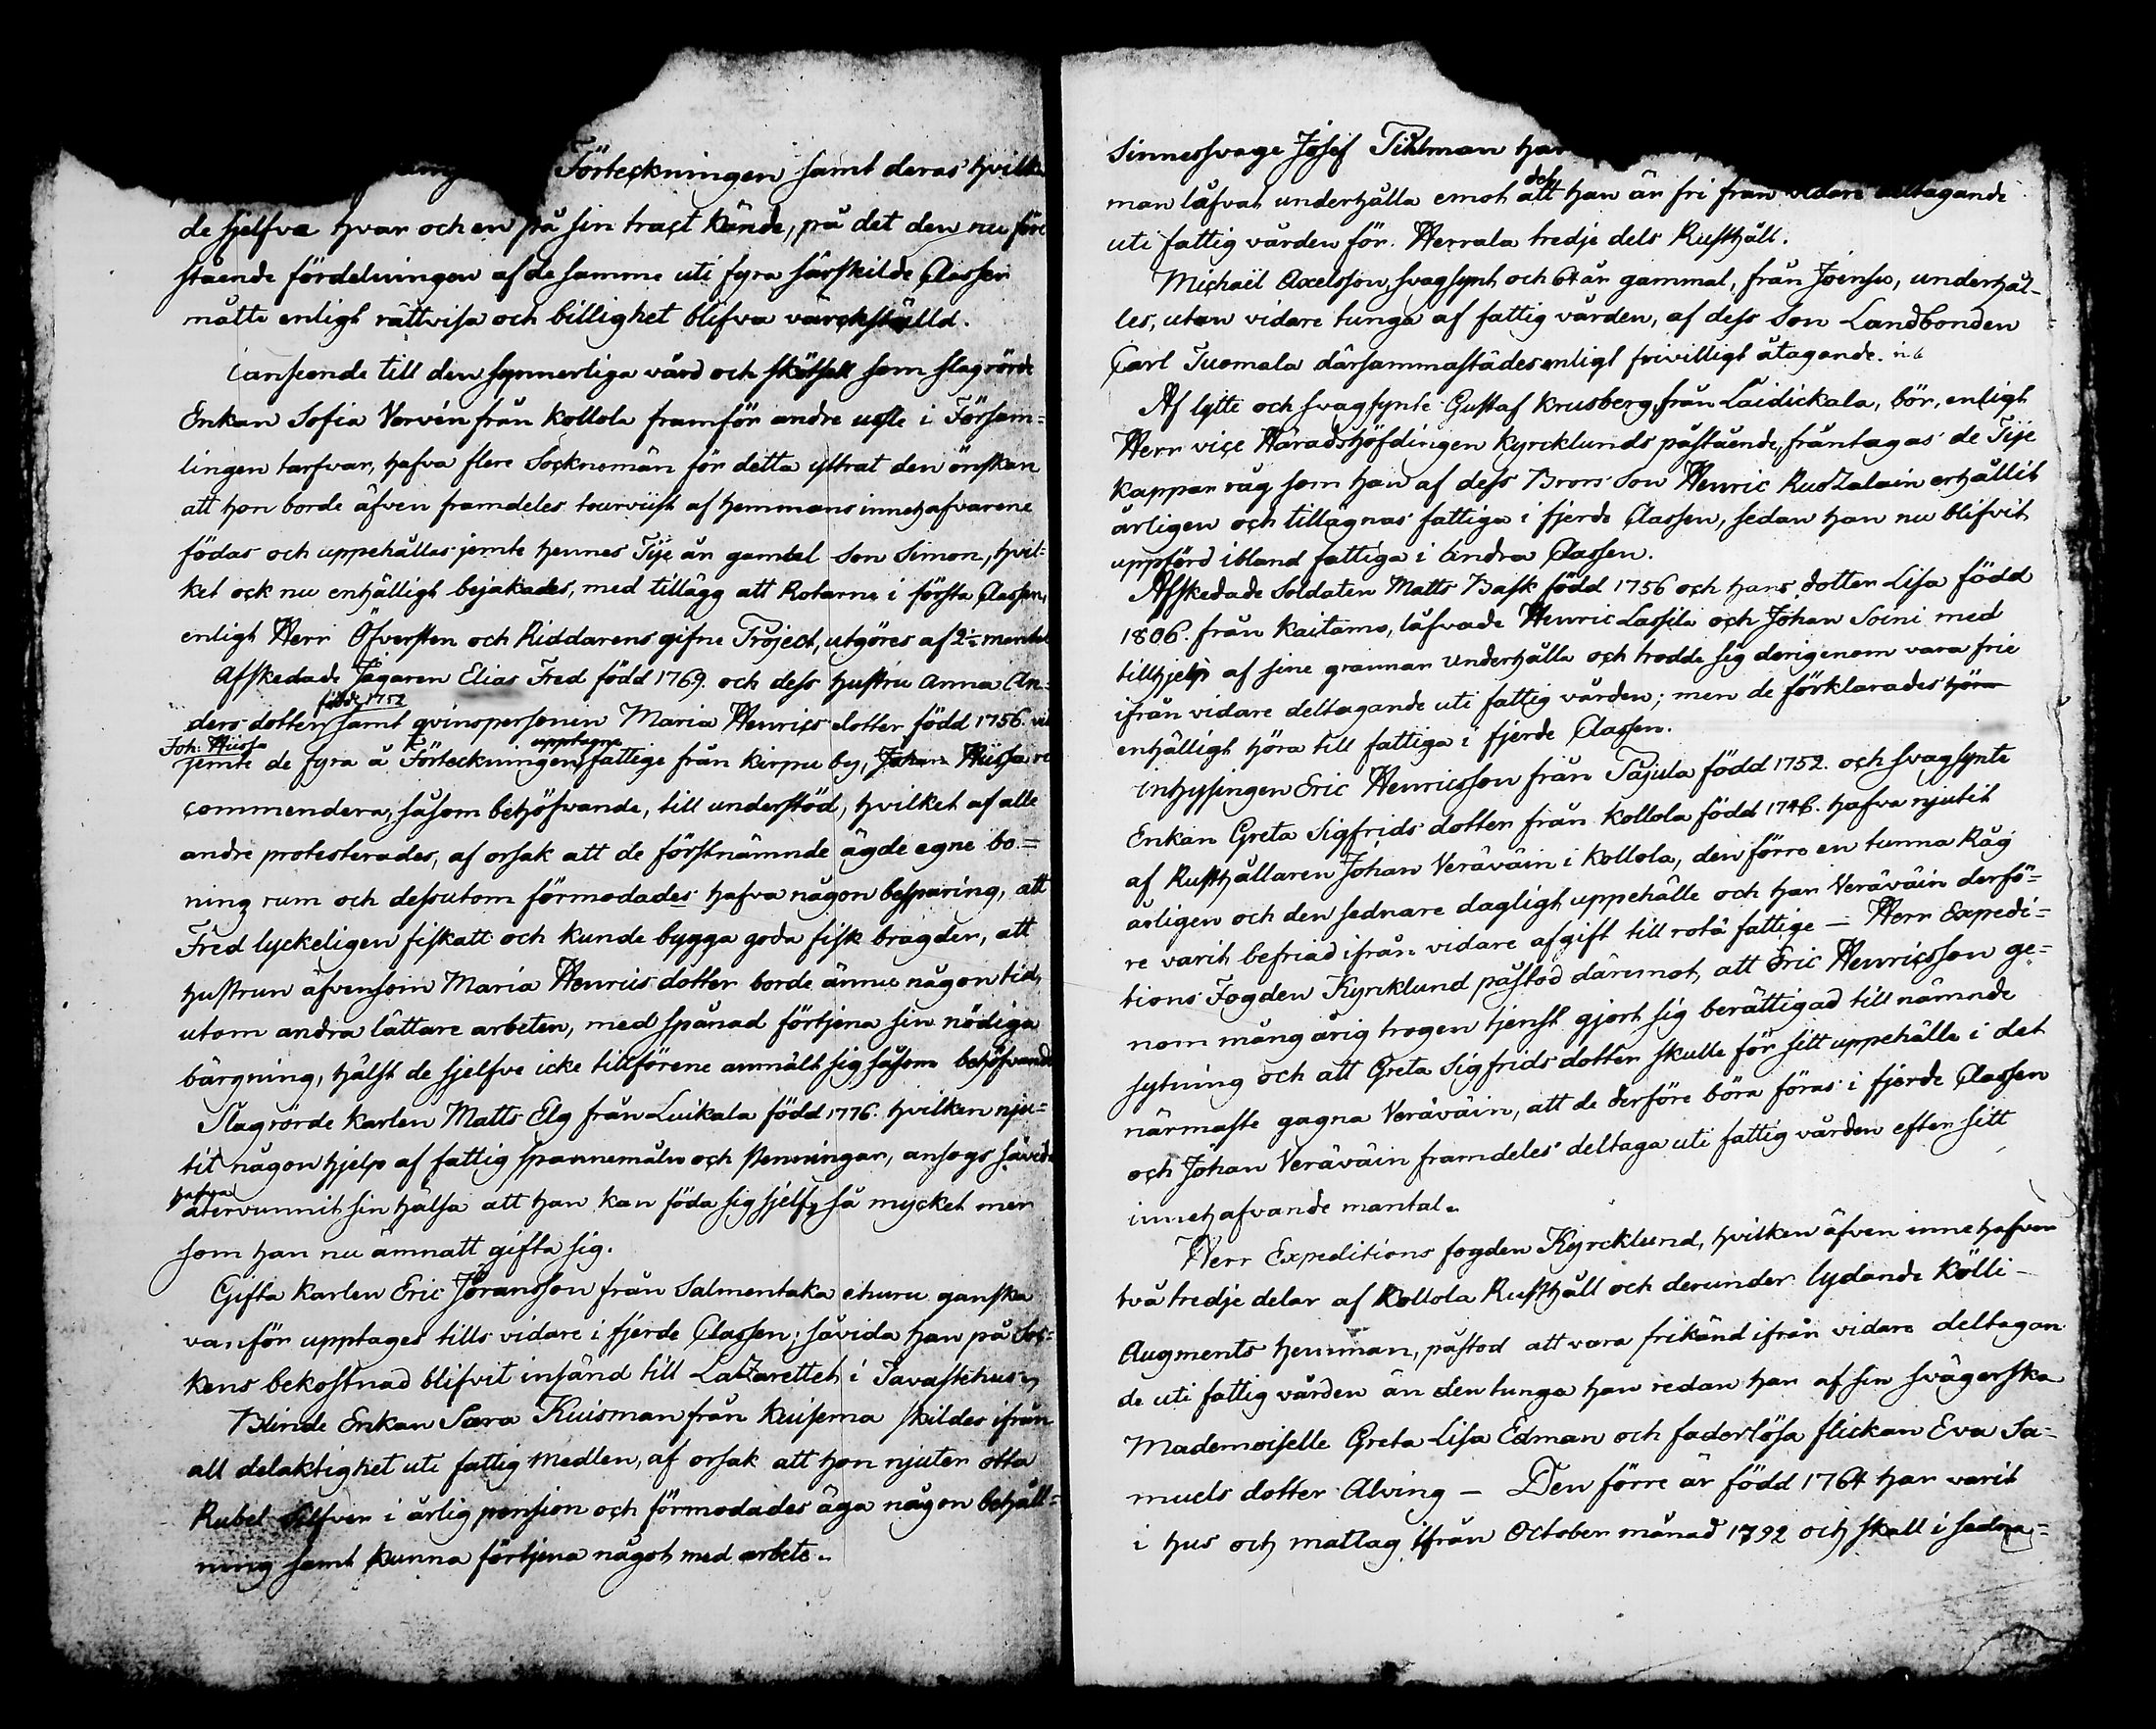 Förteckningen samt deras hvilka
de sjelfva hvar och en på sin tract kände, på det den nu före
stående fördelningen af de samme uti fyra särskilde Classer
måtte enligt rättvisa och billighet blifva värckställd.
i anseende till den synnerliga vård och skötsell som slagrörde
Enkan Sofia Vervén från Kollola framför andre usle i Försam=
lingen tarfvar, hafva flere Socknemän för detta yttrat den önskan
att hon borde äfven framdeles tourviist af hemmans innehafvarene
födas och uppehållas jemte hennes Tije år gamlal Son Simon, hvil=
ket ock nu enhälligt bejakades, med tillägg att Rotarne i första Classen,
enligt Herr Öfversten och Riddarens gifne Project, utgöres af 2½ mantal
Afskedade Jägaren Elias Fred född 1769. och dess hustru Anna An=
född 1752
ders dotter samt qvinspersonen Maria Henrics dotter född 1756.
Joh: Hüssa upptagne
jemte de fyra å Förteckningen fattige från Kirpu by, Johan Hüssa re
commendera, såsom behöfvande, till understöd, hvilket af alle
andre protesterades, af orsak att de förstnämnde ägde egne bo=
ning rum och dessutom förmodades hafva någon besparing, att
Fred lyckeligen fiskatt och kunde bygga goda fisk bragder, att
hustrun äfvensom Maria Henrics dotter borde ännu någon tid,
utom andra lättare arbeten, med spånad förtjena sin nödiga
bärgning, hälst de sjelfve icke tillförene anmält sig såsom behöfvande
Slagrörde Karlen Matts Elg från Luikala född 1776. hvilken nju=
tit någon hjelp af fattig spannemåln och Penningar, ansogs såvida
hafva
återvunnit sin hälsa att han kan föda sig sjelf, så mycket mer
som han nu ämnatt gifta sig.
Gifta Karlen Eric Jöransson från Salmentaka ehuru ganska
vanför upptages tills vidare i fjerde Classen, såvida han på Soc=
kens bekostnad blifvit insänd till Lazarettet i Tavastehus.
Blinde Enkan Sara Kuisman från Kuisema skildes ifrån
all delaktighet uti fattig Medlen, af orsak att hon njuter otta
Rubel Silfver i årlig pension och förmodades äga någon behåll=
ning samt kunna förtjena något med arbete.
Sinnessvage Josef Tihlman har
det
man låfvat underhålla emot att han är fri från vidare deltagande
uti fattig vården för Herrala tredje dels Rusthåll.
Michaël Axelsson, svagsynt och 64 år gammal, från Joensu, underhål=
les, utan vidare tunga af fattig vården, af dess Son Landbonden
Carl Tuomala därsammastädes enligt frivilligt åtagande.
Af lytte och svagsynte Gustaf Krusberg från Laidickala, bör, enligt
Herr vice Häradshöfdingen Kyrcklunds påstående, fråntagas de Tije
Kappar råg som han af dess Brors Son Henric Ruozalain erhållit
årligen och tillägnas fattiga i fjerde Classen, sedan han nu blifvit
uppförd ibland fattiga i andra Classen.
Afskedade Soldaten Matts Bask född 1756 och hans dotter Lisa född
1806. från Kaitamo, låfvade Henric Lassila och Johan Soini med
tillhjelp af sine grannar underhålla och trodde sig derigenom vara frie
ifrån vidare deltagande uti fattig vården; men de förklarades höra
enhälligt höra till fattiga i fjerde Classen.
inhysingen Eric Henricsson från Pajula född 1752. och svagsynte
Enkan Greta Sigfrids dotter från Kollola född 1746. hafva njutit
af Rusthållaren Johan Veräväin i Kollola, den förre en tunna Råg
årligen och den sednare dagligt uppehälle och han Veräväin derfö=
re varit befriad ifrån vidare afgift till rotä fattige — Herr Expedi=
tions Fogden Kyrcklund påstod däremot, att Eric Henricsson ge=
nom mång årig trogen tjenst gjort sig berättigad till nämnde
sytning och att Greta Sigfrids dotter skulle för sitt uppehälle i det
närmaste gagna Veräväin, att de derföre böra föras i fjerde Classen
och Johan Veräväin framdeles deltaga uti fattig vården efter sitt
innehafvande mantal.
Herr Expeditions fogden Kyrcklund, hvilken äfven innehafver
två tredje delar af Kollola Rusthåll och derunder lydande Kölli-
Augments hemman, påstod att vara frikänd ifrån vidare deltagan
de uti fattig vården än den tunga han redan har af sin svägerska
Mademoiselle Greta Lisa Edman och faderlösa flickan Eva Sa=
muels dotter Alving — Den förre är född 1764 har varit
i hus och mattag ifrån October månad 1792 och skall i sedna=